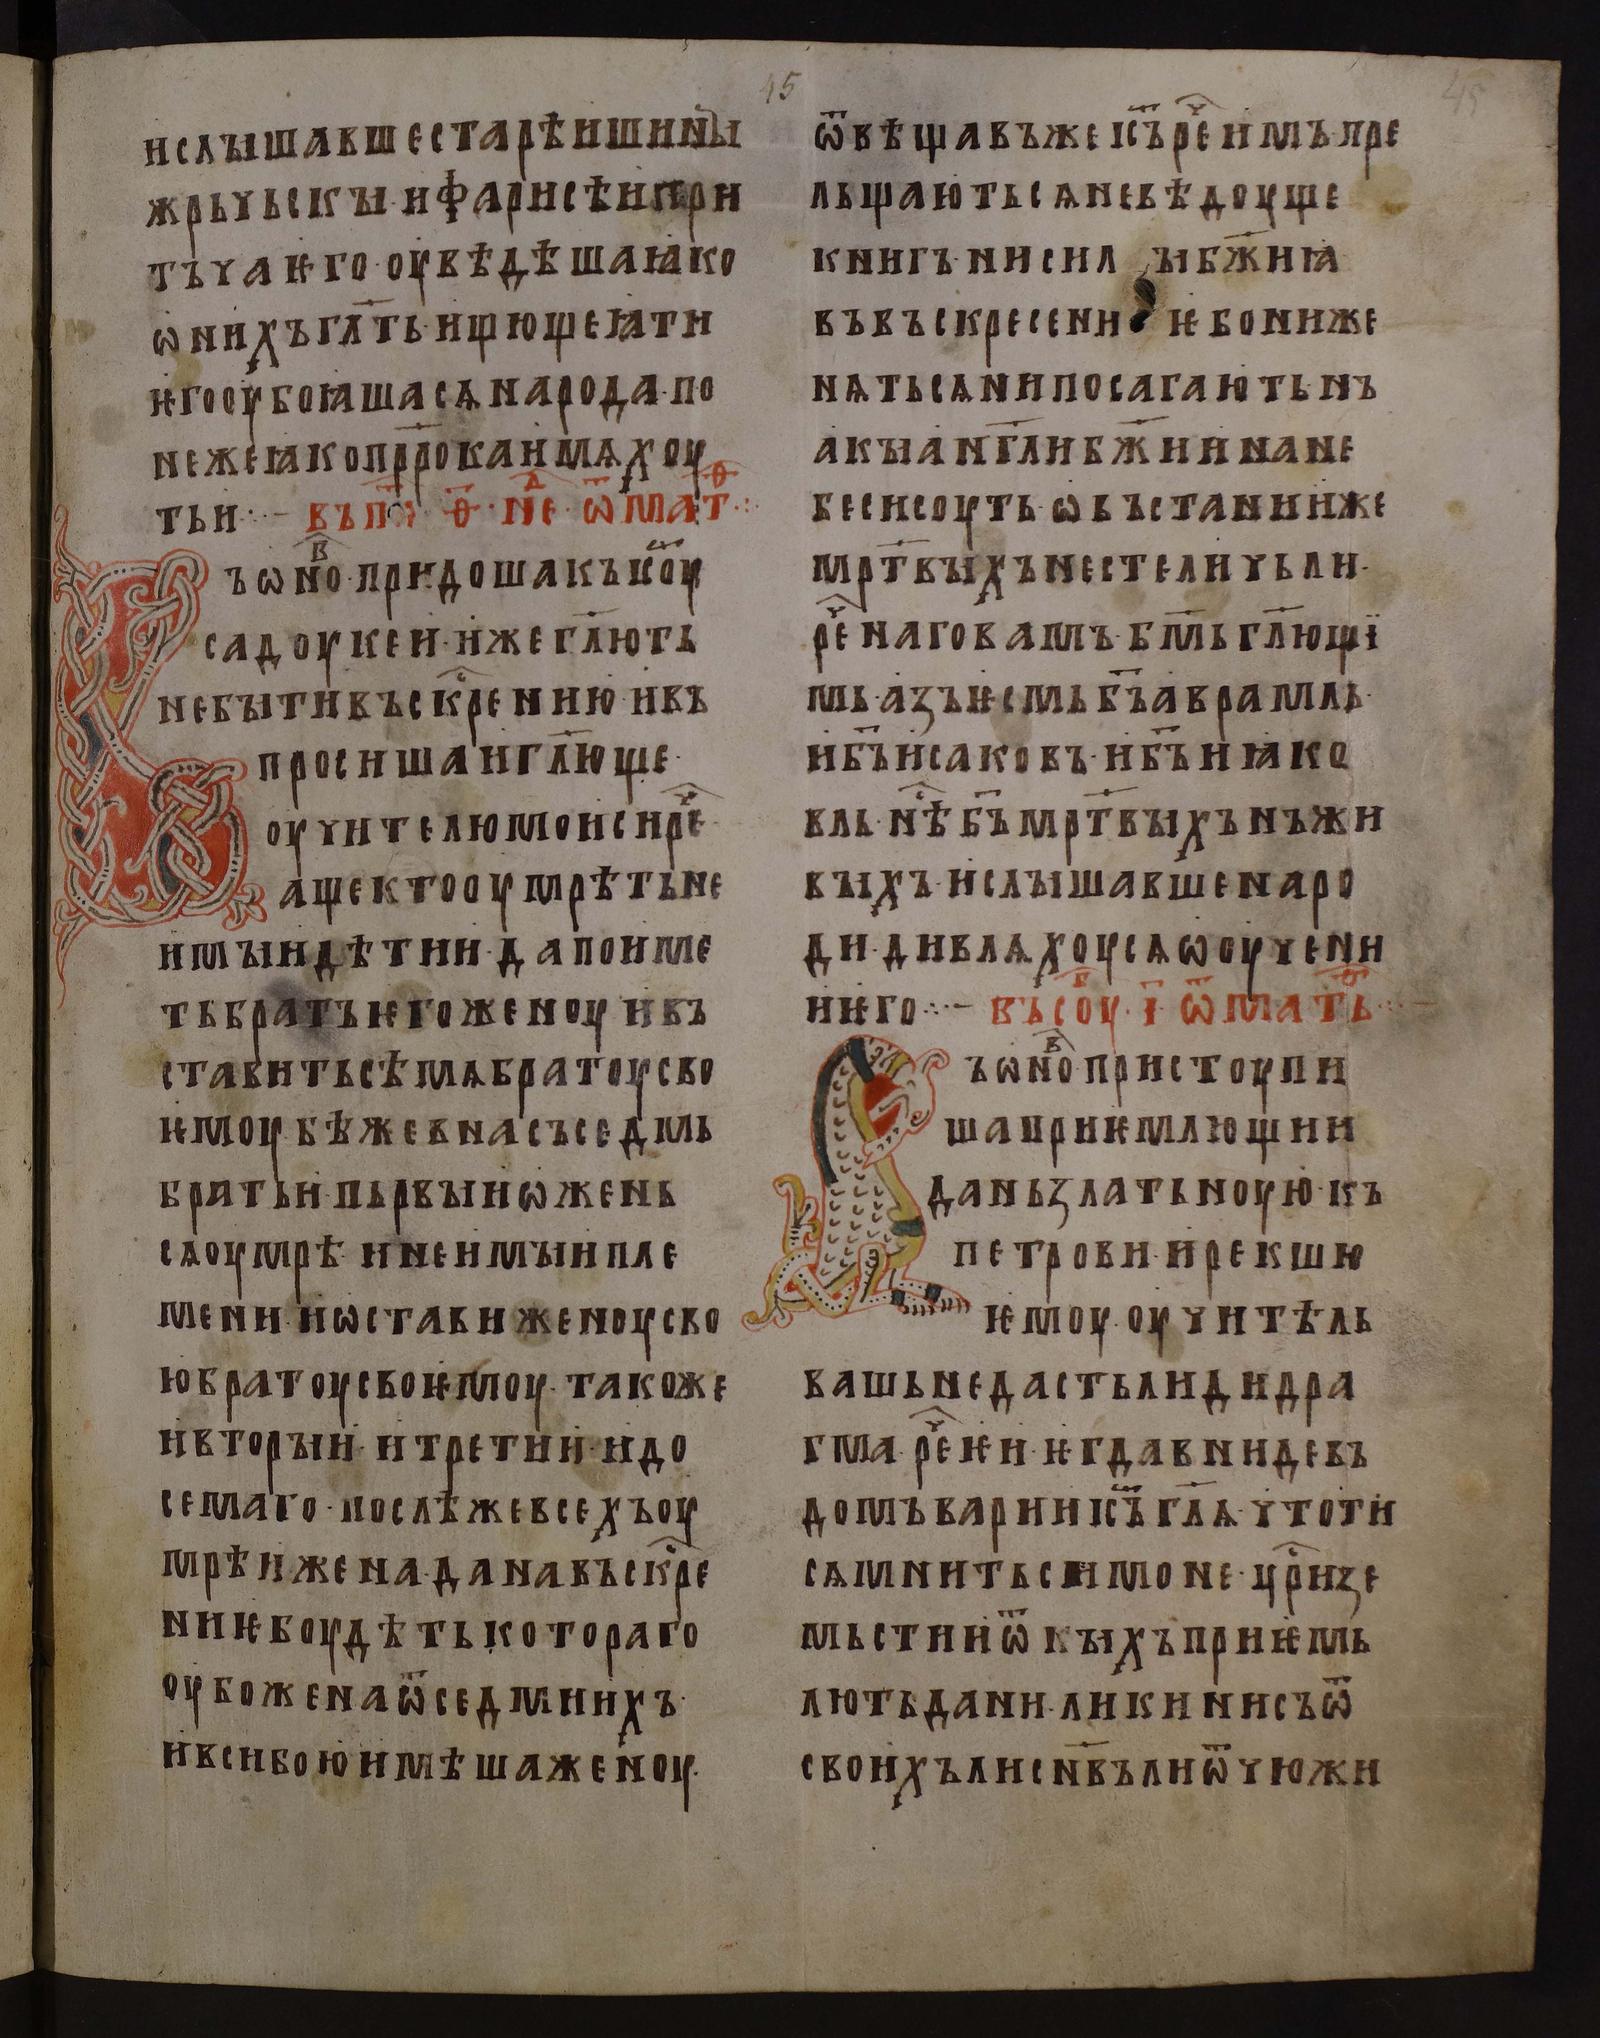 45
45
ислышавшестарѣишины
жрьчьскыифарисѣипри
тъчаѥго·оувѣдѣшаꙗко
ѡнихъгл҃ть·ищющеꙗти
ѥгооубоꙗшасѧнарода·по
нежеꙗкопрⷪ҇рокаимѧхоу
тьи·:- въпⷪ҇· ѳ҃·неⷣ·ѿмаⷮѳ·:·
ъѡноⷡ·придошакъис҃оу
садоукеи·ижегл҃ють
небытивъскр҇ению·ивъ
просишаигл҃юще·
оучителюмоисиреⷱ·
ащектооумрѣтьне
имыидѣтии·дапоиме
тьбратъѥгоженоу·ивъ
ставитьсѣмѧбратоусво
ѥмоубѣжевнасъседмь
братьи·пьрвыиѡжень
сѧоумрѣ·инеимыипле
мени·иѡставиженоусво
юбратоусвоѥмоу·такоже
ивторыи·итретии·идо
семаго·послѣжевсехъоу
мрѣижена·данавъскр҇е
ниѥбоудѣтькотораго
оубоженаѿседмиихъ·
ивсибоюимѣшаженоу·
ѿвѣщавъжеіс҃ъреⷱимъ·пре
льщаютьсѧневѣдоуще
книгъ·нисилыбж҃иꙗ
въвъскресениѥбонише
нѧтьсѧнипосагаютьнъ
акыаньгл҃ибж҃иинане
бесисоуть·ѡвъстаниже
мрт҃выхънестеличьли·
реⷱнаговамъ·бм҃ьгл҃ющї
мь·азъѥсмьбъ҃аврамль·
ибъ҃исаковъ·ибъ҃иꙗко
вль·нѣⷭбъ҃мрт҃выхънъжи
выхъ·ислышавшенаро
ди·дивлѧхоусѧѡоучени
иѥго·:- въсоуⷠ·і҃·ѿматⷴь·:-
ъѡноⷡпристоупи
шаприѥмлющии
даньзлатьноую·къ
петрови·ирекшю
ѥмоу·оучитѣль
вашьнедастьлидидра
гма·реⷱѥи·ѥгдавнидевъ
домъварииіс҃ъгл҃ѧ·чтоти
сѧмнитьсимоне·цр҇изе
мьстииѿкыхъприѥмь
лютьдани·ликинисъѿ
своихълисн҃въли·ѿчюжи